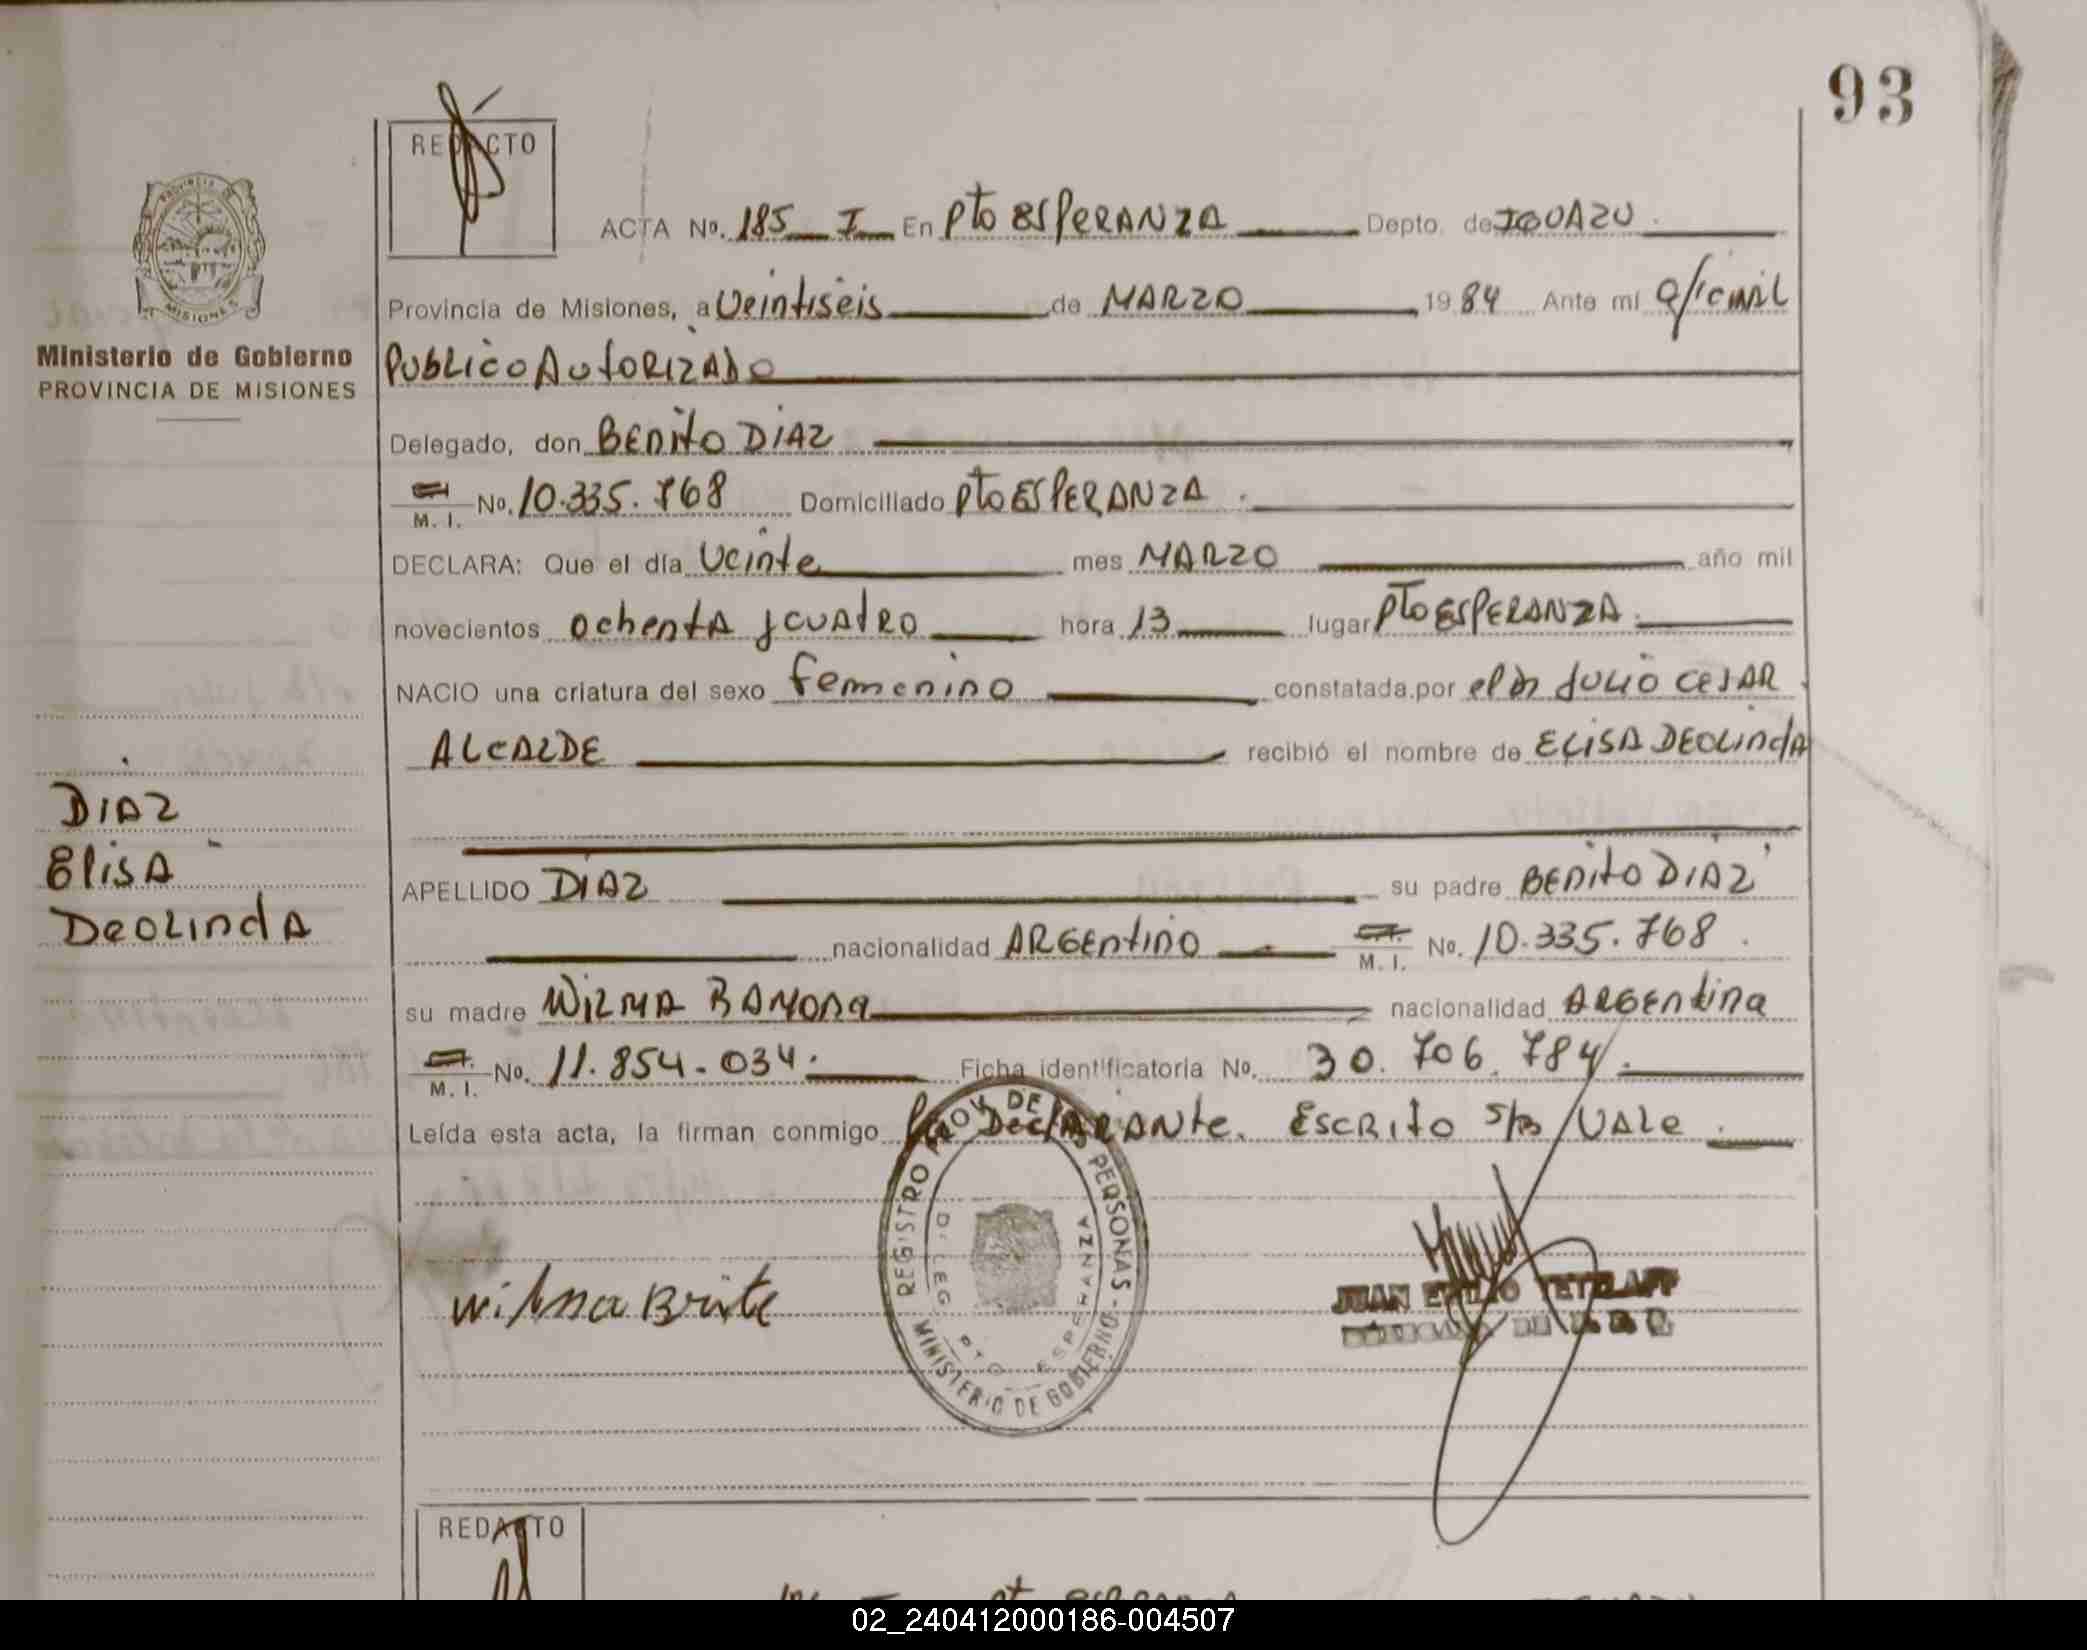 93
REDACTO
ACTA No. 185 I En Pto ESPERANZA Depto. de IGUAZU.
Provincia de Misiones, a Veintiseis de MARZO 1984 Ante mí Oficial
Ministerio de Gobierno
PROVINCIA DE MISIONES
Publico Autorizado
Delegado, don BENito DiAZ
M. I. No. 10.335.768 Domiciliado Pto ESPERANZA.
DECLARA: Que el día Veinte mes MARZO año mil
novecientos ochenta y cuatro hora 13 lugar Pto ESPERANZA.
NACIO una criatura del sexo femenino constatada por el Dr Julio CESAR
ALCALDE recibió el nombre de ELISA DEOLindA
DIAZ
ElisA
DeOLindA
APELLIDO DIAZ su padre BENito DIAZ
nacionalidad ARGEntino M. I. No. 10.335.768.
su madre WILMA RAMONA nacionalidad ARGEntina
M. I. No. 11.854.034. Ficha identificatoria No. 30.706.784.
Leída esta acta, la firman conmigo DeclARANte. EscRito s/b VALe
REGISTRO PROV. DE PERSONAS - MINISTERIO DE GOBIERNO
DELEG. PTO ESPERANZA
Wilma Brite
JUAN EMILIO TETZLAFF
REDACTO
02_240412000186-004507